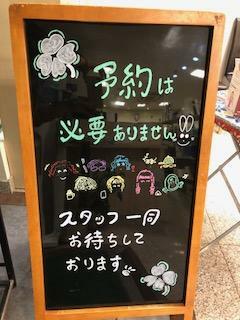 予約は
必要ありません
スタッフ一同
お待ちして
おります